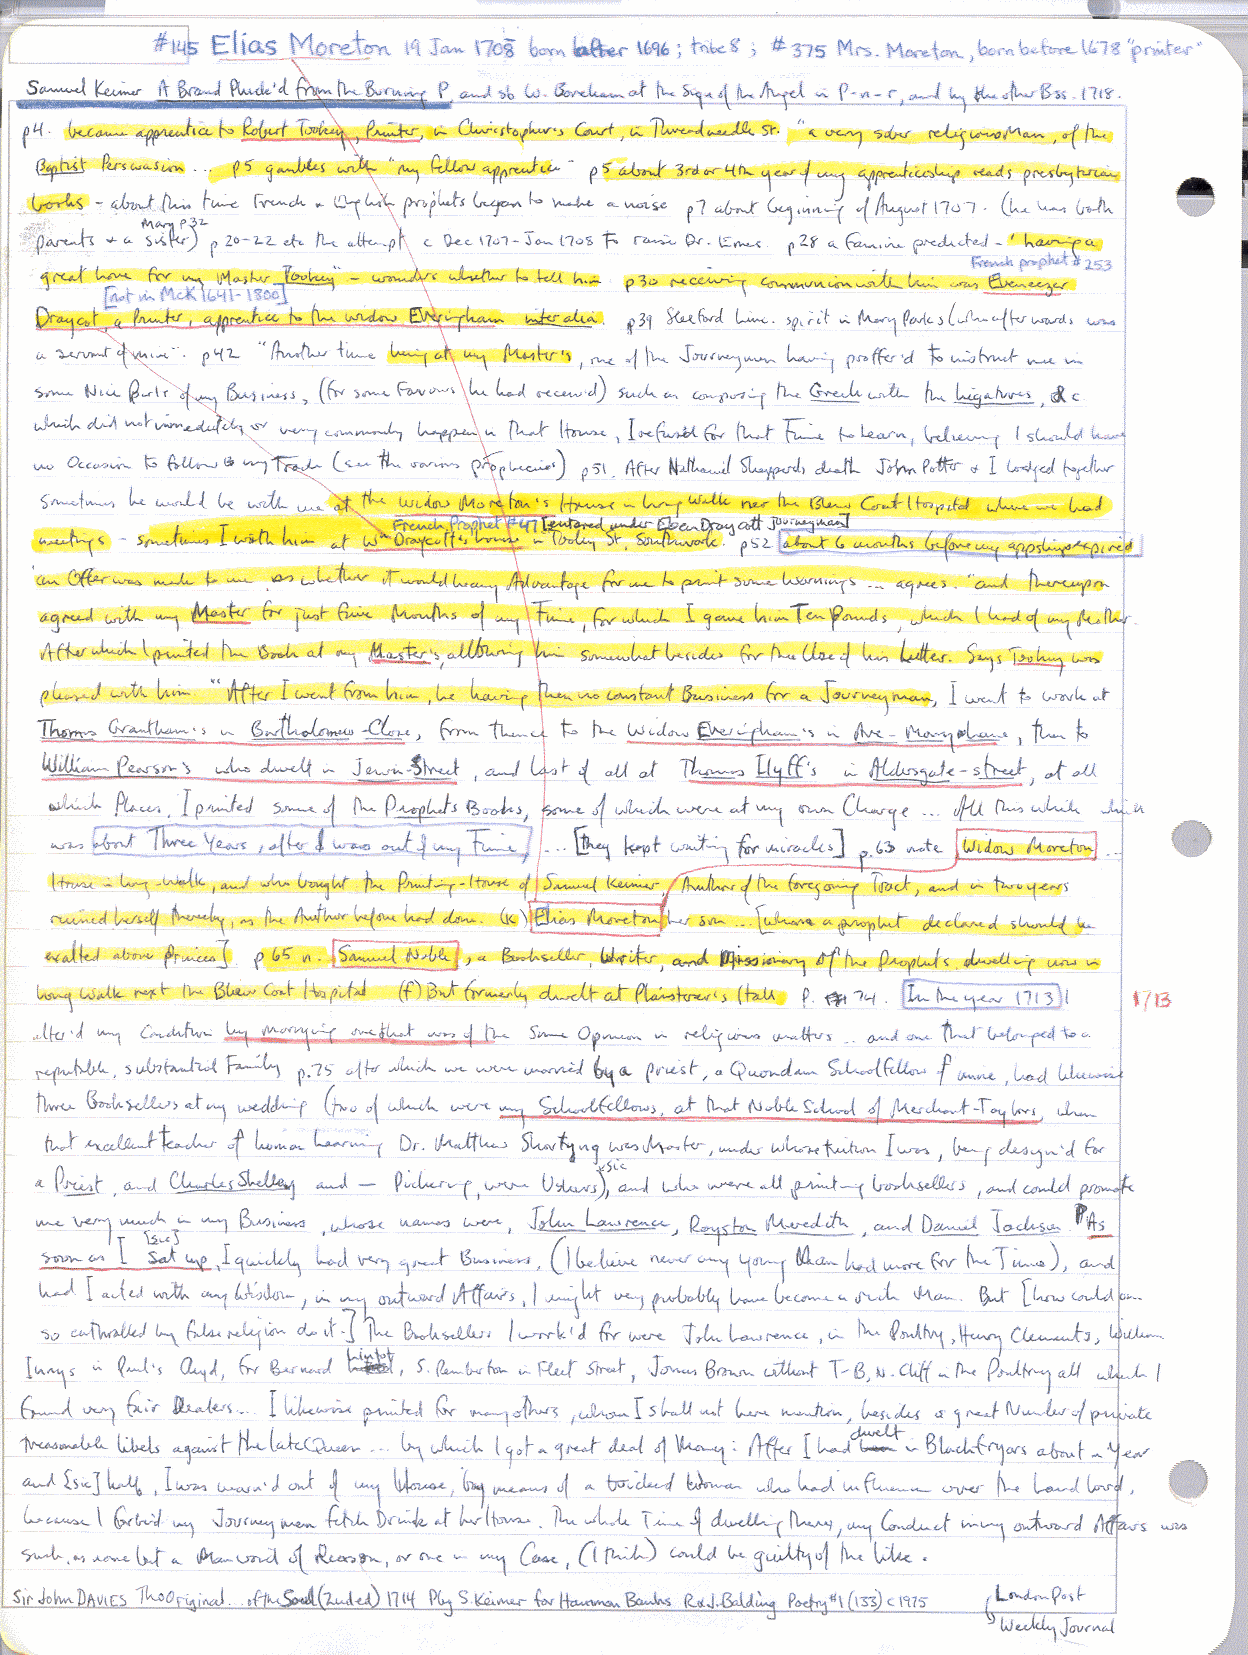 #145 Elias Moreton 19 Jan 1708 born after 1696; tribe 8; #375 Mrs. Moreton, born before 1678 "printer"
Samuel Keimer A Brand Pluck'd from the Burning P. and sb W. Boreham at the Sign of the Angel in P-n-r, and by the other Bss. 1718.
p4. became apprentice to Robert Tookey, Printer, in Christopher's Court, in Threadneedle St. "a very sober religious Man, of the
Baptist Perswasion ... p5 gambles with "my fellow apprentice" p5 about 3rd or 4th year of my apprenticeship reads presbyterian
books - about this time French & English prophets began to make a noise p7 about beginning of August 1707. (he was both
Mary p32
parents & a sister) p 20-22 etc the attempt c Dec 1707-Jan 1708 to raise Dr. Emes. p28 a famine predicted - "having a
French prophet #253
great love for my Master Tookey" - wonders whether to tell him p30 receiving communion with him was Ebeneezer
[not in McK 1641-1800]
Draycot, a Printer, apprentice to the widow Everingham inter alia. p39 Sleeford Lane. spirit in Mary Parks (who afterwards was
a servant of mine". p42 "Another time being at my Master's, one of the Journeymen having proffer'd to instruct me in
some Nice Parts of my Business, (for some Favours he had receiv'd) such as composing the Greek with the Ligatures, &c.
which did not immediately or very commonly happen in that House, I refused for that Time to Learn, believing I should have
no Occasion to follow my Trade (see the various prophecies) p51. After Nathaniel Shepperds death John Potter & I lodged together
sometimes he would be with me at the Widow Moreton's House in Long Walk near the Blew Coat Hospital where we had
French Prophet #47 [entered under Eben Draycott journeyman]
meetings - sometimes I with him at Wm Draycott's house in Tooley St, Southwark. p52 about 6 months before my appship expired
an Offer was made to me as whether it would be any Advantage for me to print some Warnings ... agrees. "and thereupon
agreed with my Master for just five Months of my Time, for which I gave him Ten Pounds, which I had of my Mother.
After which I printed the Book at my Master's, allowing him somewhat besides for the Use of his Letter. Says Tookey was
pleased with him. "After I went from him, he having then no constant Business for a Journeyman, I went to work at
Thomas Grantham's in Bartholomew-Close, from thence to the Widow Everingham's in Ave-Mary-Lane, then to
William Pearson's who dwelt in Jewin-Street, and last of all at Thomas Ilyff's in Aldersgate-street, at all
which Places, I printed some of the Prophets Books, some of which were at my own Charge ... All this while which
was about Three Years, after I was out of my Time, ... [they kept waiting for miracles] p.63 note Widow Moreton ...
House in Long-Walk, and who bought the Printing-House of Samuel Keimer, Author of the foregoing Tract, and in two years
ruined herself thereby, as the Author before had done. (K) Elias Moreton her son ... [whom a prophet declared should be
exalted above Princes]. p 65 n. Samuel Noble, a Bookseller, Writer, and Missionary of the Prophets, dwelling now in
Long Walk next the Blew Coat Hospital (f) But formerly dwelt at Plaisterer's Hall P. 74. In the year 1713 I 1713
alter'd my Condition by marrying one that was of the same Opinion in religious matters .. and one that belonged to a
reputable, substantial Family p.75 after which we were married by a priest, a Quondam Schoolfellow of mine, had likewise
three Booksellers at my wedding (two of which were my Schoolfellows, at that Noble School of Merchant-Taylors, when
that excellent teacher of human Learning Dr. Matthew Shortyng was Master, under whose tuition I was, being design'd for
sic
a Priest, and Charles Shelley and — Pickering, were Ushers), and who were all printing booksellers, and could promote
me very much in my Business, whose names were, John Lawrence, Royston Meredith, and Daniel Jackson. "As
[sic]
soon as I Sat up, I quickly had very great Business, (I believe never any young Man had more for the Time), and
had I acted with any Wisdom, in my outward Affairs, I might very probably have become a rich Man. But [how could one
so enthralled by false religion do it.] The Booksellers I work'd for were John Lawrence, in the Poultry, Henry Clements, William
Innys in Paul's Ch yd, for Bernard Lintot, S. Pemberton in Fleet Street, Jonas Brown without T-B, N. Cliff in the Poultry all which I
found very fair Dealers... I likewise printed for many others, whom I shall not here mention, besides a great Number of private
treasonable libels against the late Queen ... by which I got a great deal of Money: After I had dwelt in Blackfryars about a Year
and [sic] half, I was warn'd out of my House, by means of a wicked Woman who had influence over the Land lord,
because I forbid my Journeymen fetch Drink at her House. The whole Time of dwelling there, my Conduct in my outward Affairs was
such, as none but a Man void of Reason, or one in my Case, (I think) could be guilty of the like.
Sir John DAVIES The Original .. of the Soul (2nd ed) 1714 P by S. Keimer for Hammon Banks R & J. Balding Poetry #1 (133) c1975
London Post
Weekly Journal